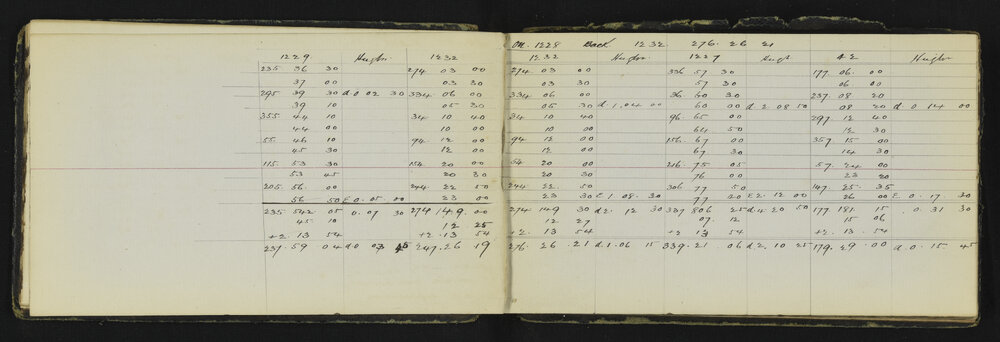 1229 Height 1232
235 36 30 274 03 00
37 00 03 30
295 39 30 d 0 02 30 334 06 00
39 10 05 30
355 44 10 34 10 40
44 00 10 00
55 46 10 94 12 00
45 30 12 00
115 53 30 154 20 00
53 45 20 30
205 56 00 244 22 50
56 50 E 0 05 00 23 00
235 542 05 0 07 30 274 149 00
45 10 12 25
+2 13 54 +2 13 54
237 59 04 d 0 03 45 247 26 19
On 1228 Back 1232 276 26 21
1232 Height 1227 Height A2 Height
274 03 00 336 57 30 177 06 00
03 30 57 30 06 00
334 06 00 36 60 30 237 08 20
05 30 d 1 04 00 60 00 d 2 08 50 08 20 d 0 14 00
34 10 40 96 65 00 297 12 40
10 00 64 50 12 30
94 12 00 156 67 00 357 15 00
12 00 67 30 14 30
54 20 00 216 75 05 57 24 00
20 30 76 00 23 20
244 22 50 306 77 50 147 25 35
23 30 E 1 08 30 77 00 E 2 12 00 26 00 E 0 17 30
274 149 30 d 2 12 30 337 806 25 d 4 20 50 177 181 15 0 31 30
12 27 07 12 15 06
+2 13 54 +2 13 54 +2 13 54
276 26 21 d 1 06 15 339 21 06 d 2 10 25 179 29 00 d 0 15 45